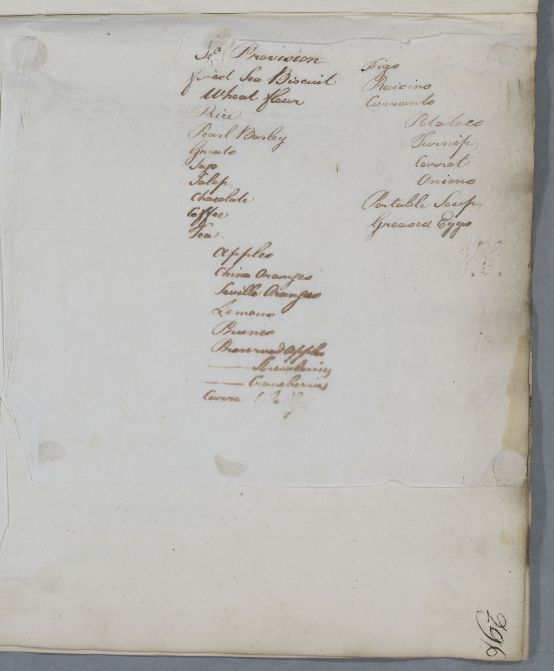 Provision
Sea Biscuit
Wheat flour
Rice
Pearl Barley
Greats
Sago
Salep
Chocolate
Coffee
Tea
Apples
China Oranges
Seville Oranges
Lemons
Prunes
Preserved Apples
—— Strawberries
—— Cranberries
Figs
Raisins
Currants
Potatoes
Turnip
Carrot
Onions
Portable Soup
Greased Eggs
296